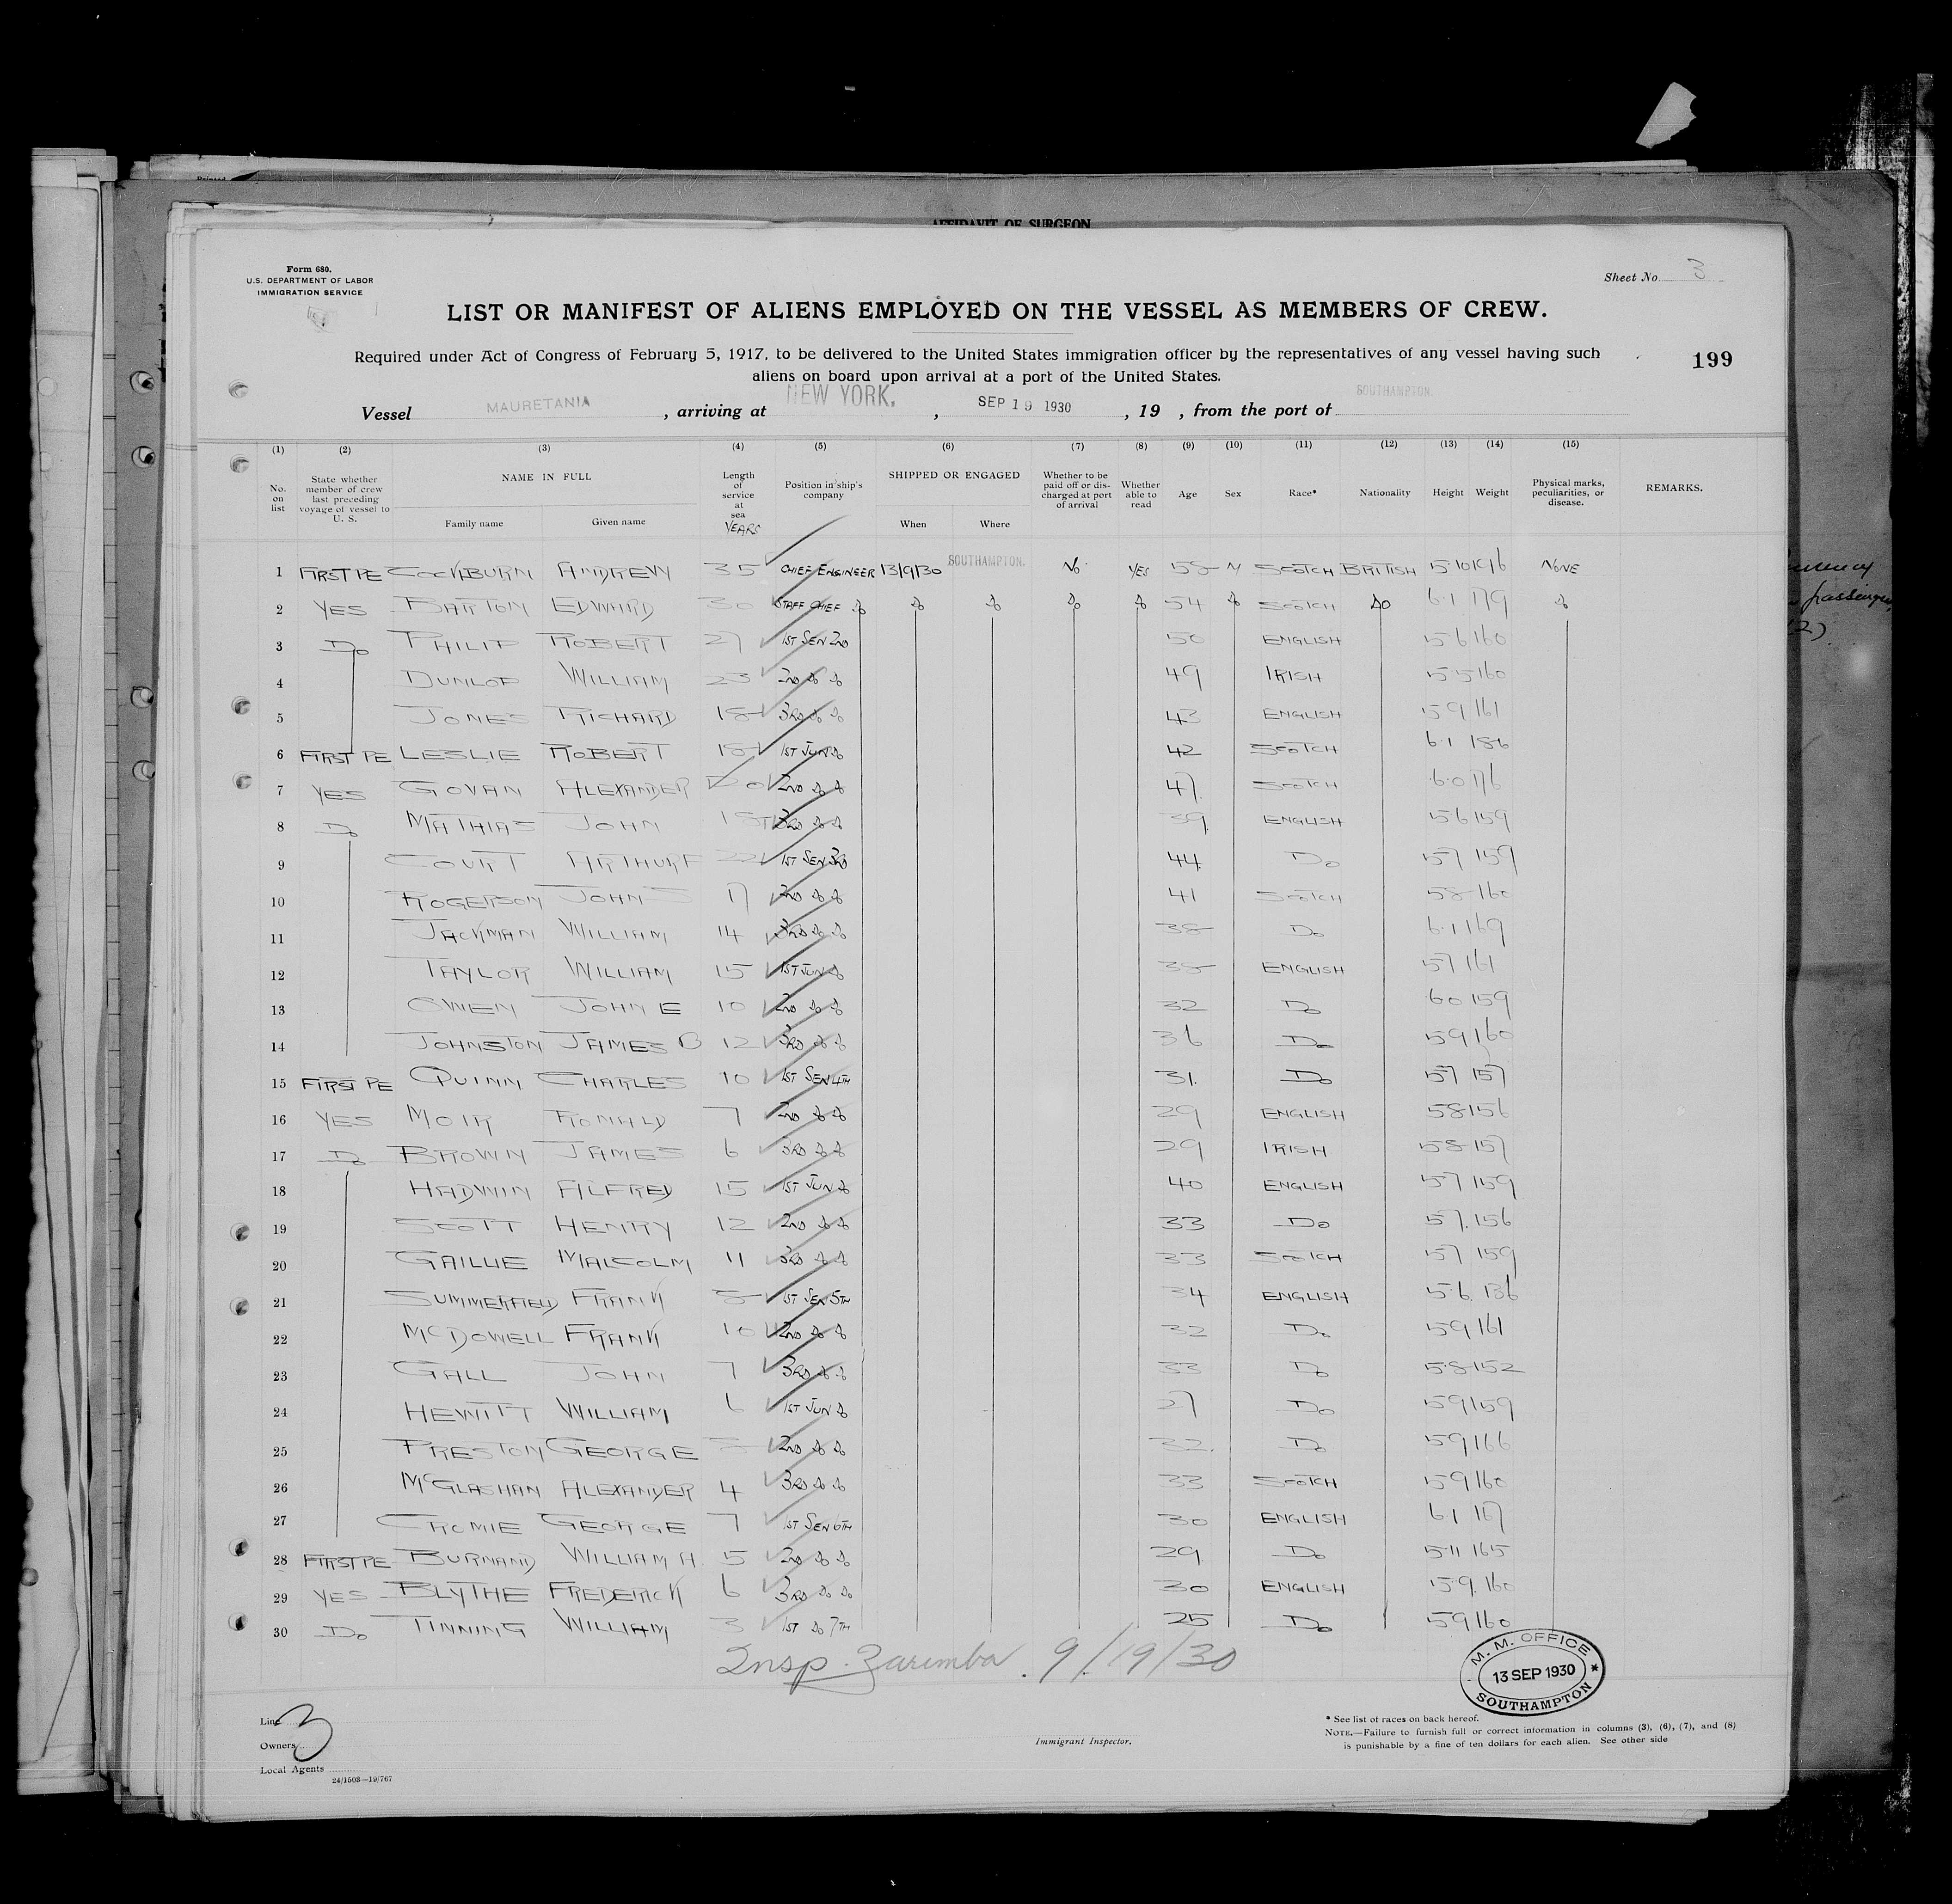 AFFIDAVIT OF SURGEON
Form 680.
U.S. DEPARTMENT OF LABOR
IMMIGRATION SERVICE
Sheet No. 3
LIST OR MANIFEST OF ALIENS EMPLOYED ON THE VESSEL AS MEMBERS OF CREW.
Required under Act of Congress of February 5, 1917, to be delivered to the United States immigration officer by the representatives of any vessel having such
aliens on board upon arrival at a port of the United States.
199
Vessel MAURETANIA, arriving at NEW YORK, SEP 19 1930, 19 , from the port of SOUTHAMPTON.
(1) (2) (3) (4) (5) (6) (7) (8) (9) (10) (11) (12) (13) (14) (15)
No. on list State whether member of crew last preceding voyage of vessel to U. S. NAME IN FULL Family name Given name Length of service at sea YEARS Position in ship's company SHIPPED OR ENGAGED When Where Whether to be paid off or discharged at port of arrival Whether able to read Age Sex Race* Nationality Height Weight Physical marks, peculiarities, or disease. REMARKS.
1 FIRST PE COCKBURN ANDREW 35 CHIEF ENGINEER 13/9/30 SOUTHAMPTON. No YES 58 M SCOTCH BRITISH 5 10 196 NONE
2 YES BARTON EDWARD 30 STAFF CHIEF Do Do Do Do Do 54 Do SCOTCH Do 6.1 179 Do
3 Do PHILIP ROBERT 27 1ST SEN 2ND 50 ENGLISH 5 6 160
4 DUNLOP WILLIAM 23 2ND Do Do 49 IRISH 5.5 160
5 JONES RICHARD 18 3RD Do Do 43 ENGLISH 5 9 161
6 FIRST PE LESLIE ROBERT 18 1ST JUN Do 42 SCOTCH 6.1 186
7 YES GOVAN ALEXANDER 20 2ND Do Do 47 SCOTCH 6.0 176
8 Do MATHIAS JOHN 15 3RD Do Do 39 ENGLISH 5 6 159
9 COURT ARTHUR F 22 1ST SEN 3RD 44 Do 5 7 159
10 ROGERSON JOHN S 17 2ND Do Do 41 SCOTCH 5 8 160
11 JACKMAN WILLIAM 14 3RD Do Do 38 Do 6.1 169
12 TAYLOR WILLIAM 15 1ST JUN Do 38 ENGLISH 5 7 161
13 OWEN JOHN E 10 2ND Do Do 32 Do 6 0 159
14 JOHNSTON JAMES B 12 3RD Do Do 36 Do 5 9 160
15 FIRST PE QUINN CHARLES 10 1ST SEN 4TH 31 Do 5 7 157
16 YES MOIR RONALD 7 2ND Do Do 29 ENGLISH 5 8 156
17 Do BROWN JAMES 6 3RD Do Do 29 IRISH 5 8 157
18 HADWIN ALFRED 15 1ST JUN Do 40 ENGLISH 5 7 159
19 SCOTT HENRY 12 2ND Do Do 33 Do 5 7. 156
20 GAILLIE MALCOLM 11 3RD Do Do 33 SCOTCH 5 7 159
21 SUMMERFIELD FRANK 8 1ST SEN 5TH 34 ENGLISH 5.6. 136
22 McDOWELL FRANK 10 2ND Do Do 32 Do 5 9 161
23 GALL JOHN 7 3RD Do Do 33 Do 5.8 152
24 HEWITT WILLIAM 6 1ST JUN Do 27 Do 5 9 159
25 PRESTON GEORGE 2ND Do Do 32. Do 5 9 166
26 McGLASHAN ALEXANDER 4 3RD Do Do 33 SCOTCH 5 9 160
27 CROMIE GEORGE 7 1ST SEN 6TH 30 ENGLISH 6.1 167
28 FIRST PE BURNAND WILLIAM A. 5 2ND Do Do 29. Do 5.11 165
29 YES BLYTHE FREDERICK 6 3RD Do Do 30 ENGLISH 5.9. 160
30 Do TINNING WILLIAM 3 1ST Do 7TH 25 Do 5 9 160
Insp. Zaremba. 9/19/30
M. M. OFFICE
13 SEP 1930
SOUTHAMPTON
Line 3
Owners
Local Agents
24/1503—19/767
Immigrant Inspector.
* See list of races on back hereof.
NOTE.—Failure to furnish full or correct information in columns (3), (6), (7), and (8)
is punishable by a fine of ten dollars for each alien. See other side